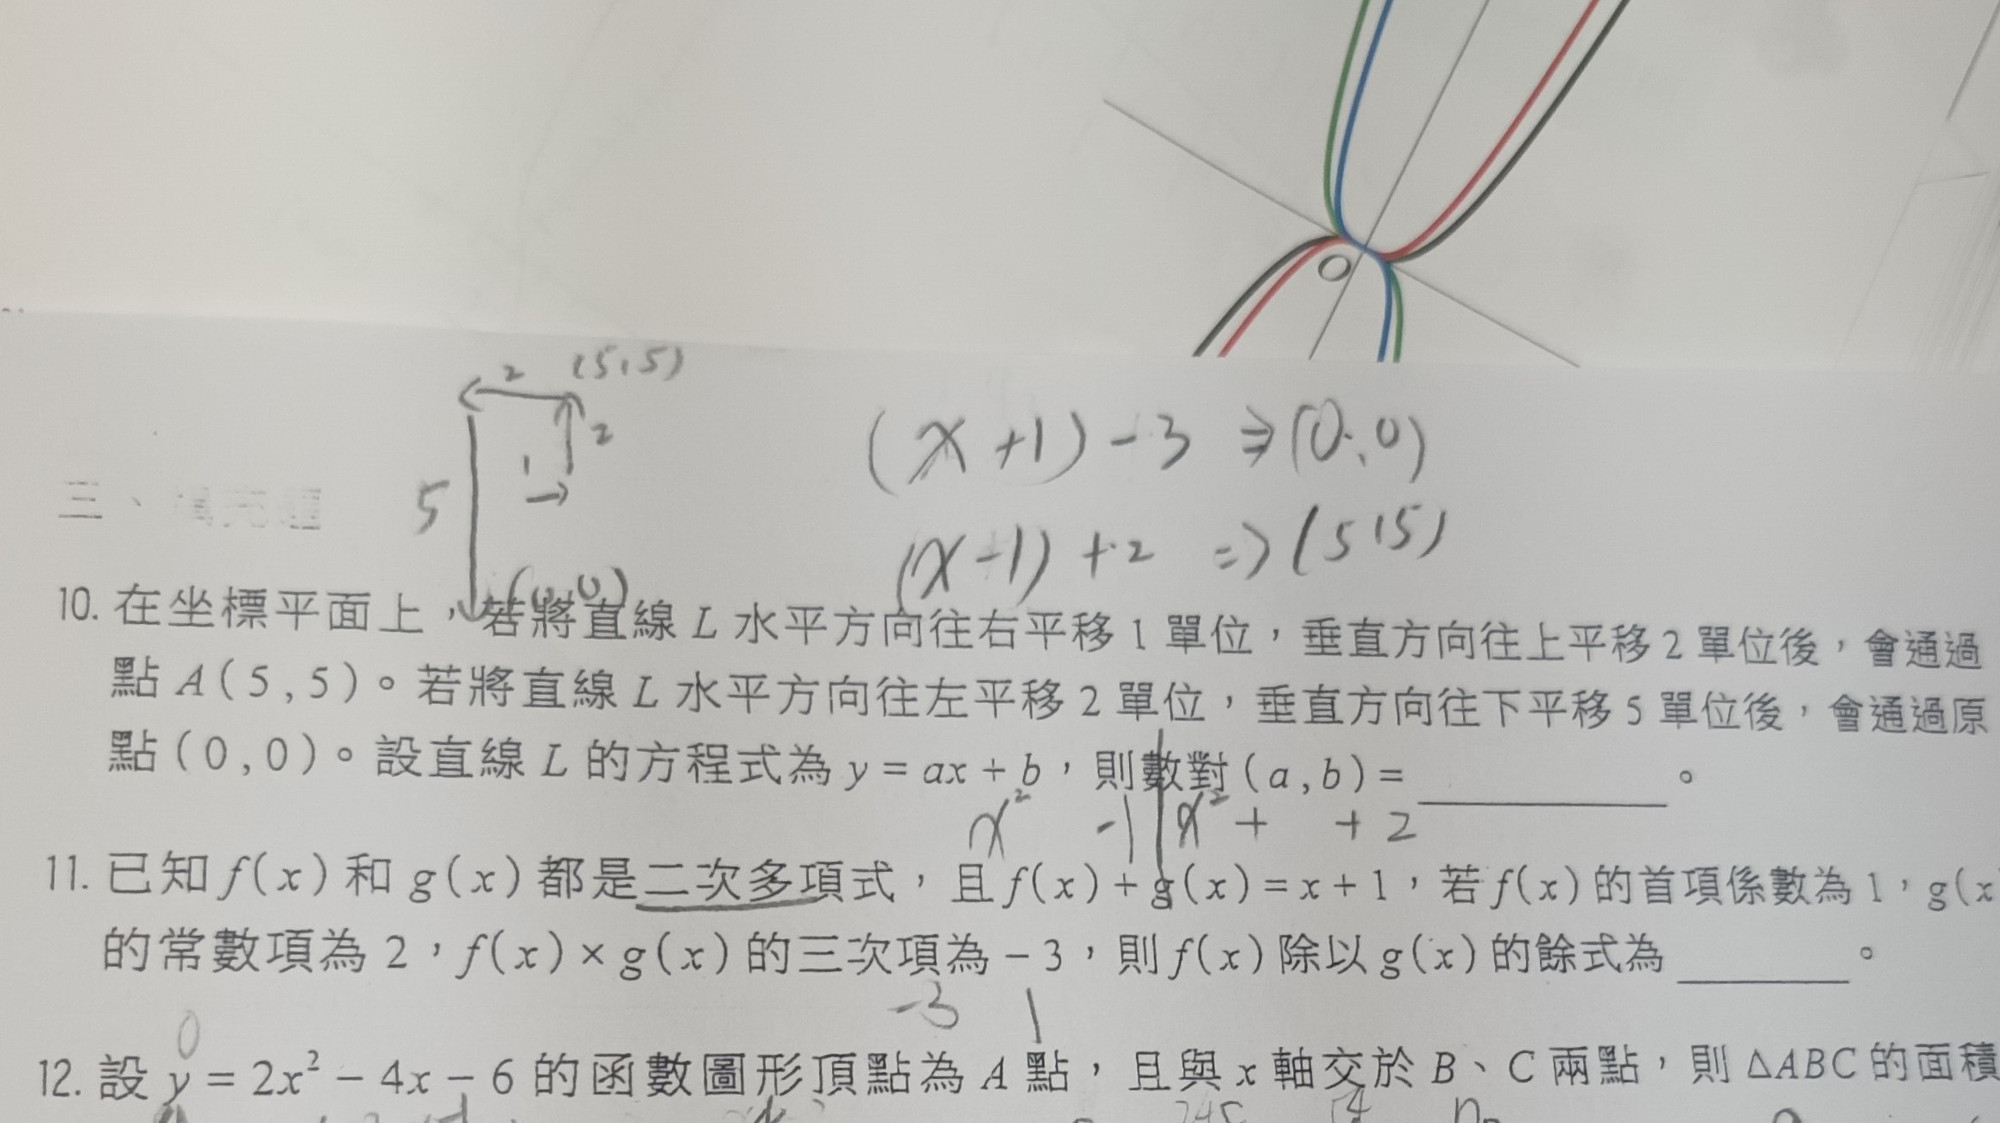 O
2 (5,5)
2
1
5
(0,0)
(x+1)-3 ⇒(0,0)
(x-1)+2 ⇒(5,5)
三、填充題
10. 在坐標平面上，若將直線 L 水平方向往右平移 1 單位，垂直方向往上平移 2 單位後，會通過
點 A(5,5)。若將直線 L 水平方向往左平移 2 單位，垂直方向往下平移 5 單位後，會通過原
點(0,0)。設直線 L 的方程式為 y = ax + b，則數對(a,b)=＿＿＿＿。
x² -1 | x² + + 2
11. 已知 f(x) 和 g(x) 都是二次多項式，且 f(x)+g(x)=x+1，若 f(x) 的首項係數為 1，g(x
的常數項為 2，f(x)×g(x) 的三次項為 -3，則 f(x) 除以 g(x) 的餘式為＿＿＿＿。
-3 1
0
12. 設 y = 2x² - 4x - 6 的函數圖形頂點為 A 點，且與 x 軸交於 B、C 兩點，則 △ABC 的面積